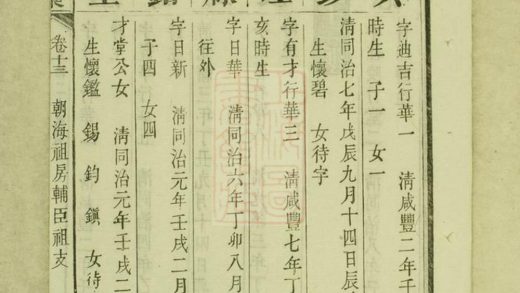 字迪吉行華一 清咸豐二年
時生 子一 女一
清同治七年戊辰九月十四日辰
生懷碧 女待字
字有才行華三 清咸豐七年丁
亥時生
字日華 清同治六年丁卯八月
往外
字日新 清同治元年壬戌二月
子四 女四
才堂公女 清同治元年壬戌二
生懷鑑 錫 鈞 鎮 女待
卷十三 朝海祖房輔臣祖支